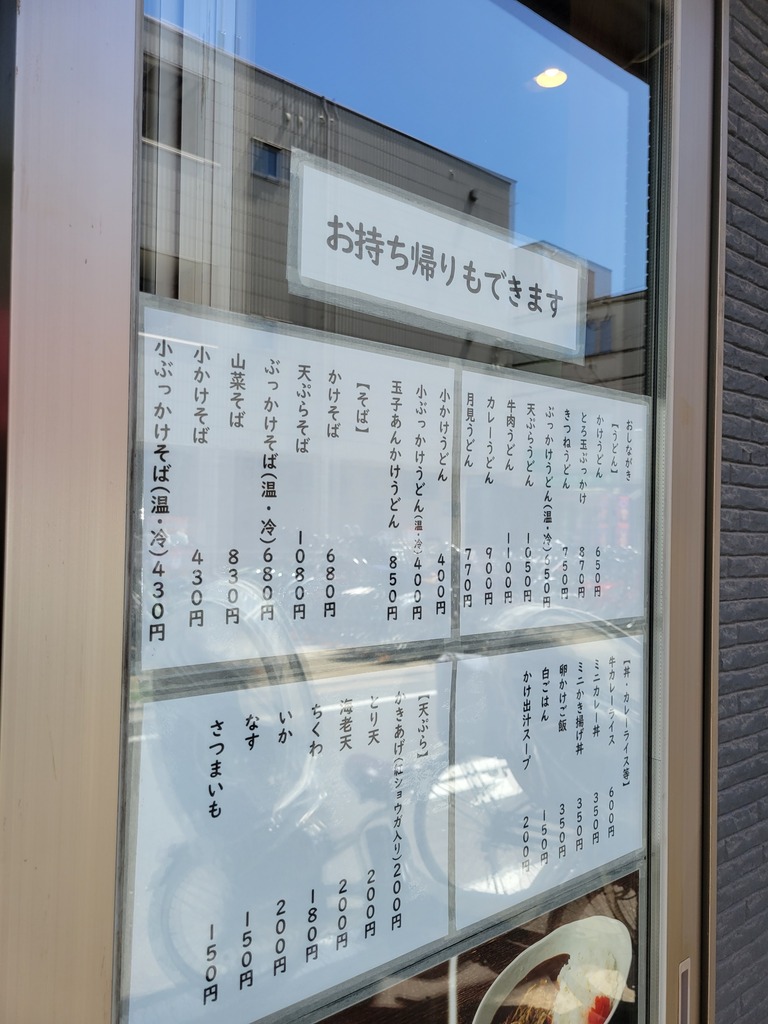 お持ち帰りもできます
おしながき
【うどん】
かけうどん 650円
とろ玉ぶっかけ 870円
きつねうどん 750円
ぶっかけうどん(温・冷)650円
天ぷらうどん 1050円
牛肉うどん 1100円
カレーうどん 900円
月見うどん 770円
小かけうどん 400円
小ぶっかけうどん(温・冷)400円
玉子あんかけうどん 850円
【そば】
かけそば 680円
天ぷらそば 1080円
ぶっかけそば(温・冷)680円
山菜そば 830円
小かけそば 430円
小ぶっかけそば(温・冷)430円
【丼・カレーライス等】
牛カレーライス 600円
ミニカレー丼 350円
ミニかき揚げ丼 350円
卵かけご飯 350円
白ごはん 150円
かけ出汁スープ 200円
【天ぷら】
かきあげ(紅ショウガ入り)200円
とり天 200円
海老天 200円
ちくわ 180円
いか 200円
なす 150円
さつまいも 150円